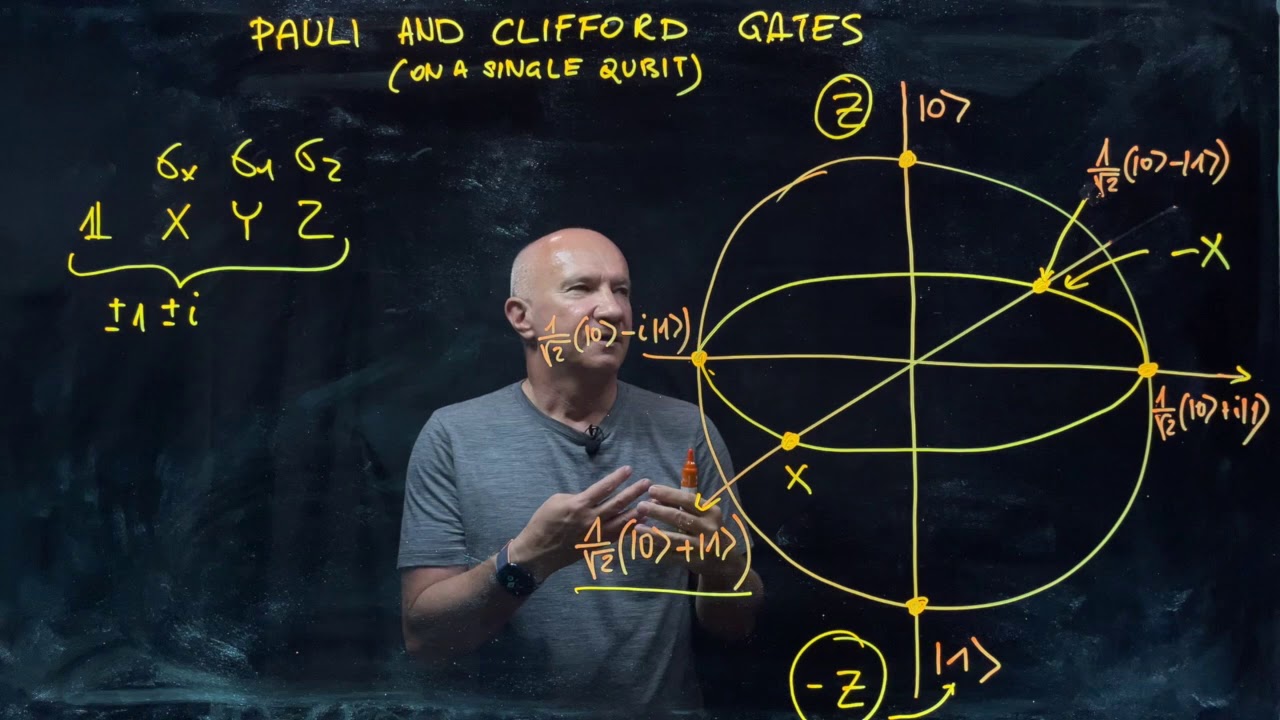 PAULI AND CLIFFORD GATES
(ON A SINGLE QUBIT)
σx σy σz
𝟙 X Y Z
±1 ±i
Z
|0⟩
1/√2(|0⟩-|1⟩)
-X
1/√2(|0⟩-i|1⟩)
1/√2(|0⟩+i|1⟩)
X
1/√2(|0⟩+|1⟩)
-Z
|1⟩